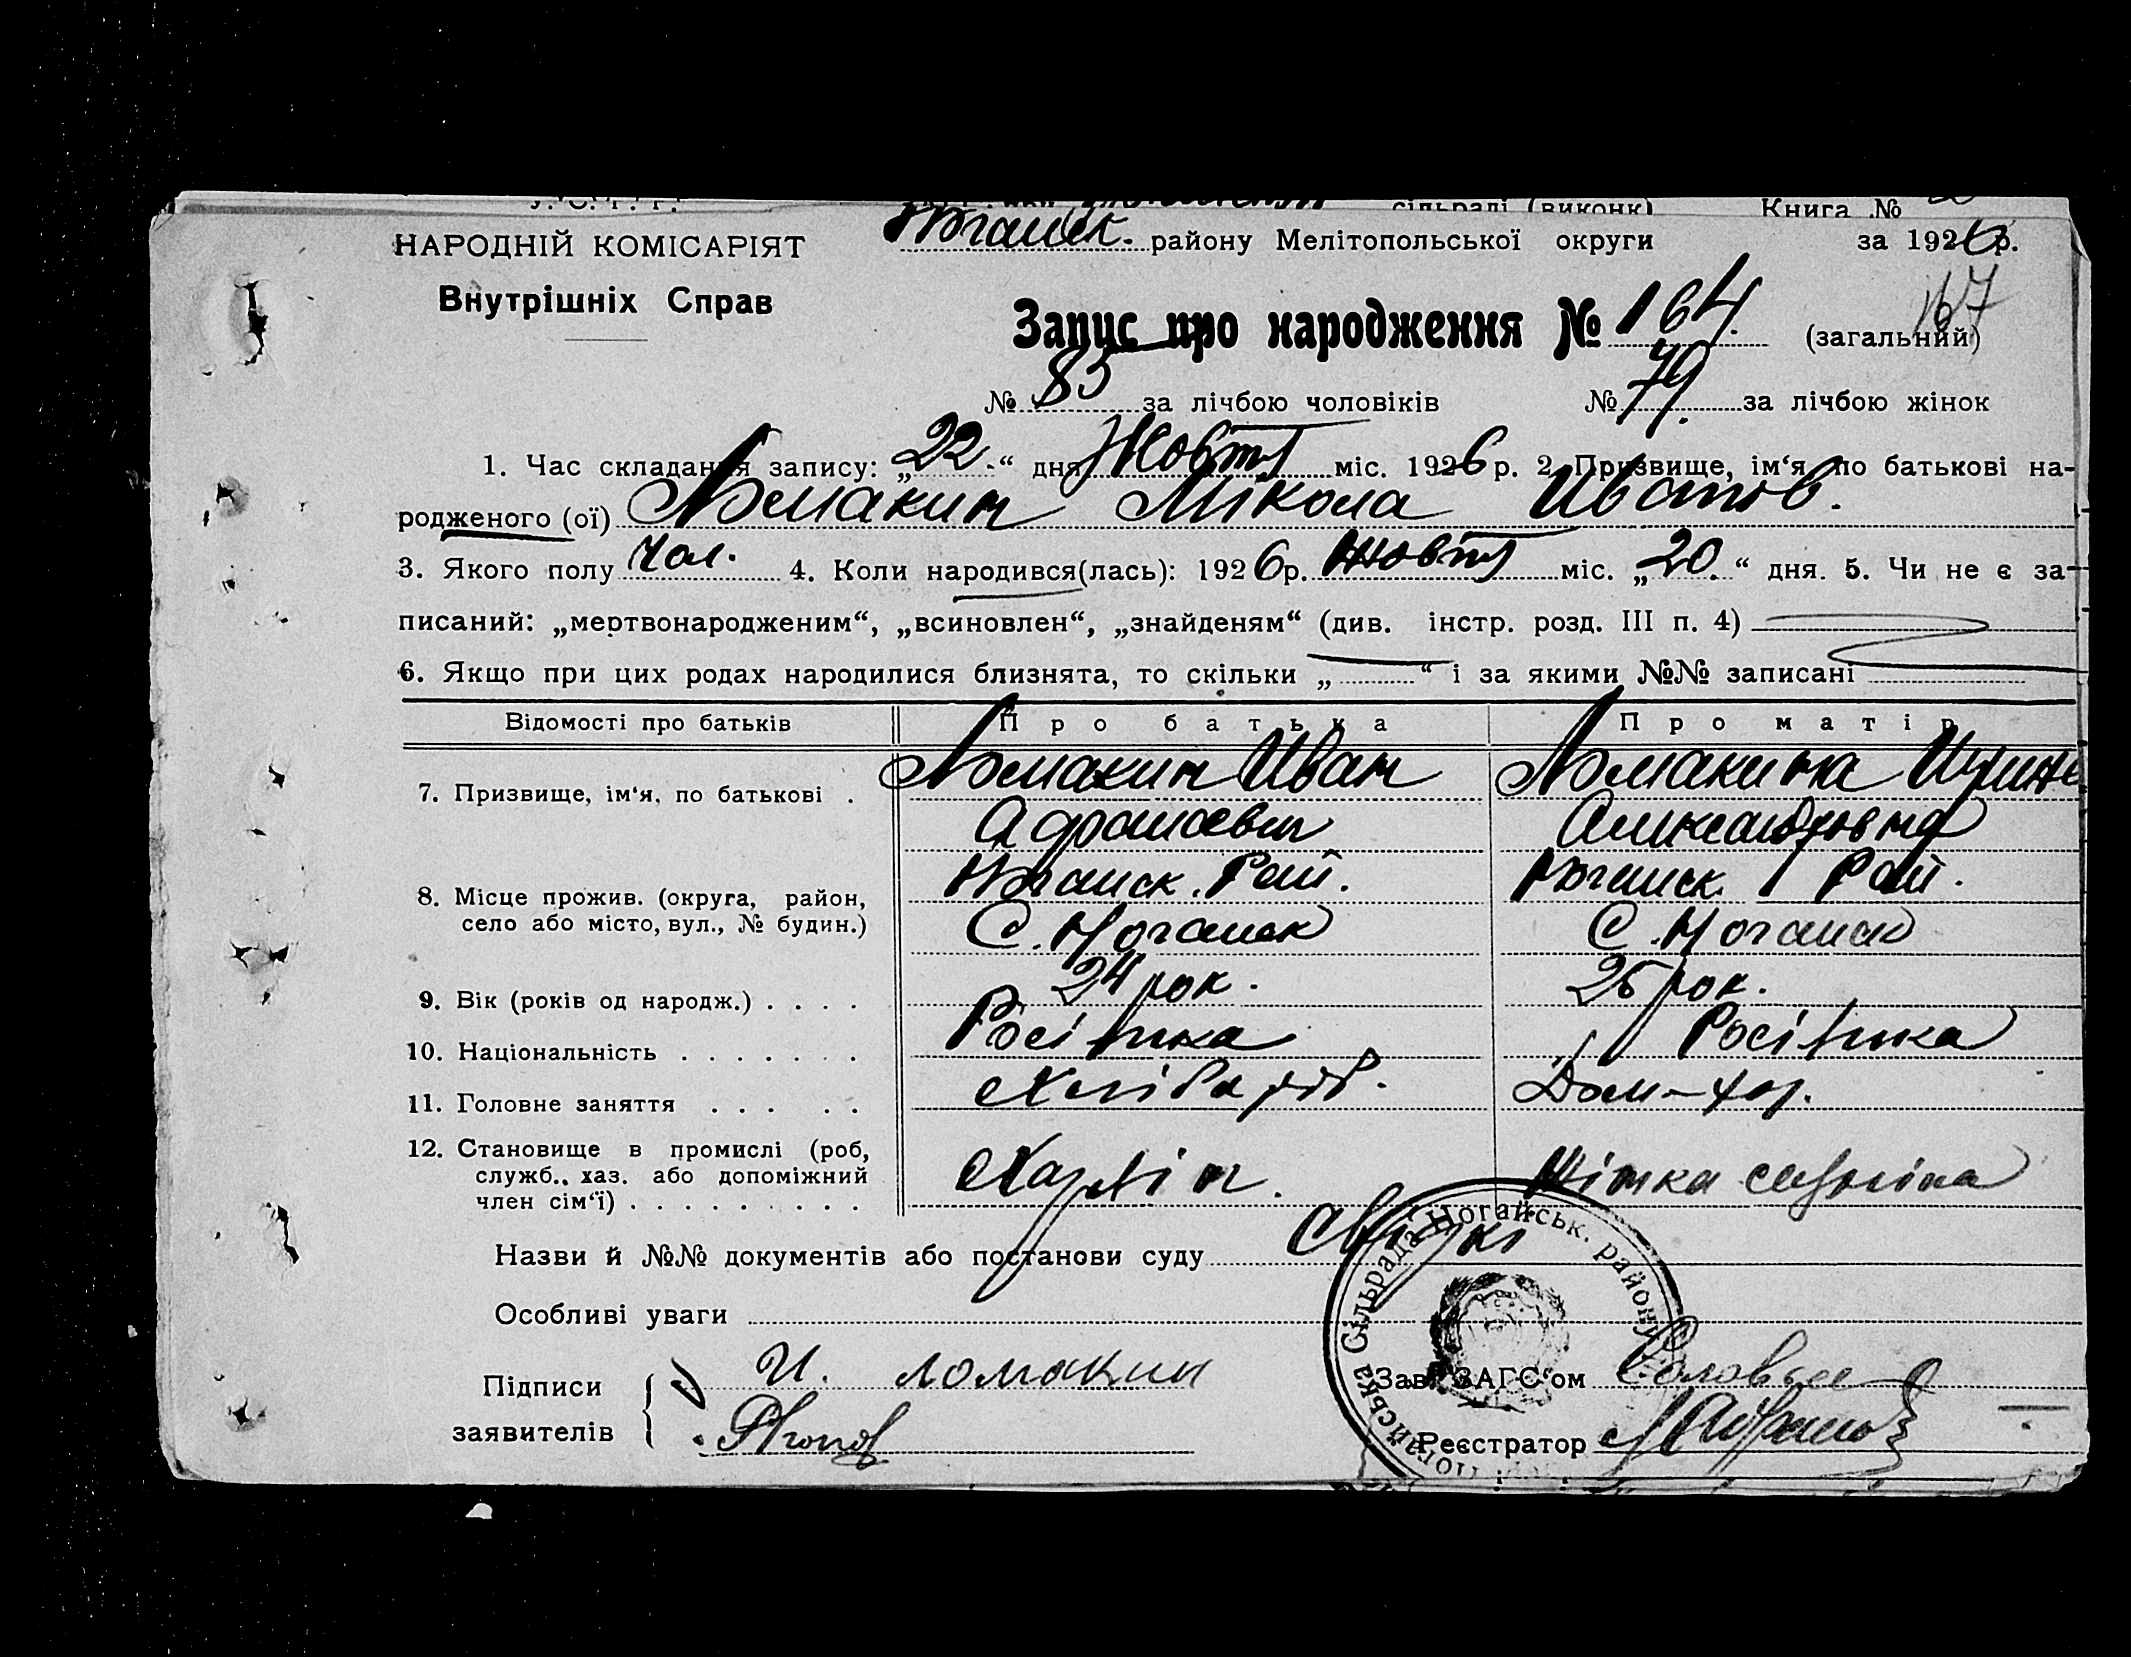 У. С. Р. Р. сільраді (виконк) Книга №
НАРОДНІЙ КОМІСАРІЯТ Ногайск. району Мелітопольської округи за 1926 р.
Внутрішніх Справ
Запис про народження № 164. (загальний) 167
№ 85 за лічбою чоловіків № 79. за лічбою жінок
1. Час складання запису: „22.“ дня Жовт міс. 1926 р. 2. Призвище, ім‘я, по батькові на-
родженого (ої) Ломакин Мікола Иванов.
3. Якого полу Чол. 4. Коли народився(лась): 1926 р. Жовт міс. „20.“ дня. 5. Чи не є за-
писаний: „мертвонародженим“, „всиновлен“, „знайденям“ (див. інстр. розд. III п. 4)
6. Якщо при цих родах народилися близнята, то скільки „ “ і за якими №№ записані
Відомості про батьків Про батька Про матір
7. Призвище, ім‘я, по батькові . Ломакин Иван Ломакина
Александровна
Ногайск. Рай. Ногайск. Рай.
8. Місце прожив. (округа, район,
село або місто, вул., № будин.) С. Ногайск С. Ногайск
9. Вік (років од народж.) . . . . 24 рок. 25 рок.
10. Національність . . . . . . . Росіянка Росіянка
11. Головне заняття . . . . . Хлібороб. Дом-хоз.
12. Становище в промислі (роб,
служб., хаз. або допоміжний
член сім‘ї) . . . . . . . . . Жінка
Назви й №№ документів або постанови суду
Особливі уваги
Підписи И. Ломакин Зав. ЗАГС‘ом
заявителів Реєстратор
Ногайська Сільрада Ногайськ. району